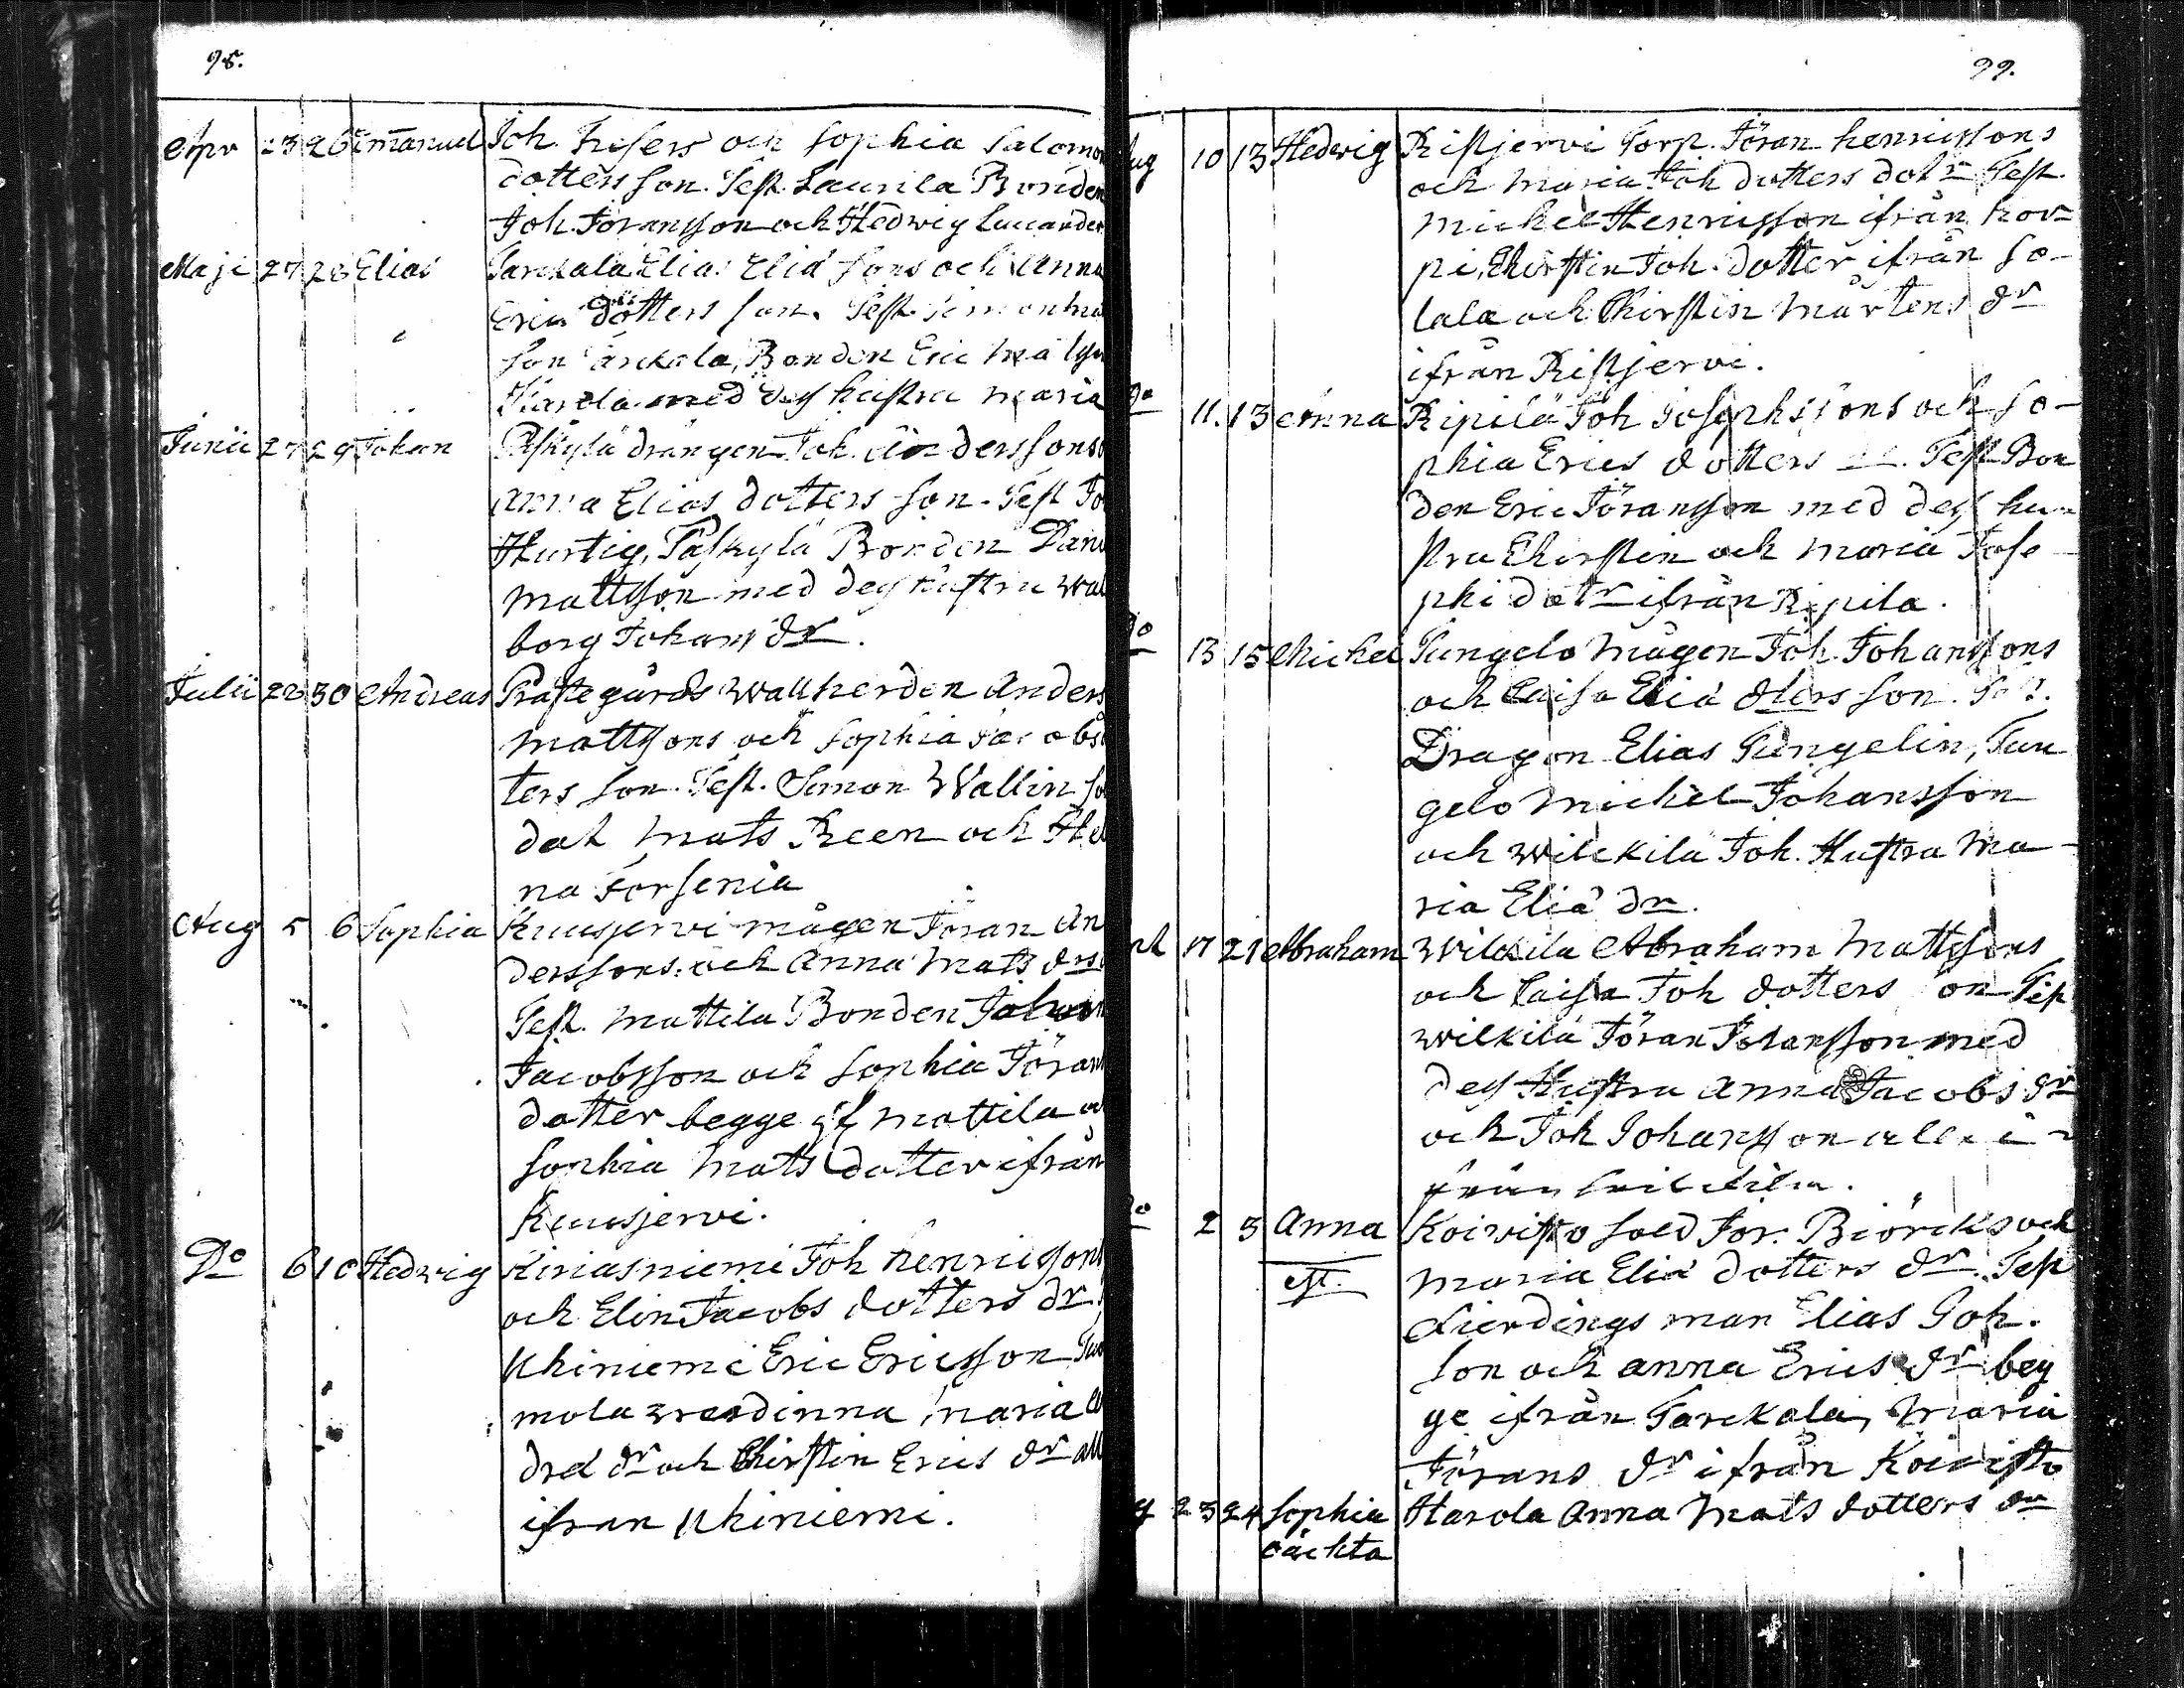 98.
Apr 23 26 Emanuel Joh. Fresers och Sophia Salomon
dotters son. Test. Laurila Bonden
Joh. Jöransson och Hedwig Lucander
Maji 27 28 Elias Tarckala Elias Eliæ sons och Anna
Erics dotters son. Test. Simon
son Tarckala, Bonden Eric
Harola med dess hustru Maria
Junii 27 29 Johan Påskylä drängen Joh. Anderssons
Anna Elias dotters son. Test Jo
Hurtig, Påskylä Bonden Dani
Mattsson med dess hustru Wal
borg Johans dr.
Julii 22 30 Andreas Prästegårds Wallherden Anders
Mattsons och Sophia Jacobs
ters son. Test. Simon Wallin So
dat Mats Reen och Hel
na Forsenia
Aug 5 6 Sophia Kuusjervi mågen Jöran An
derssons och Anna Mats drs
Test. Mattila Bonden Johan
Jacobsson och Sophia Jöran
dotter begge af Mattila
Sophia Mats dotter ifrån
Kuusjervi.
Do 6 10 Hedwig Kiriasniemi Joh henricsons
och Elin Jacobs dotters dr.
Uhiniemi Eric Ericsson Tuo
mola werdinna Maria A
dred dr och Chirstin Erics dr all
ifran Uhiniemi.
99.
Aug 10 13 Hedwig Ristjervi Torp. Jöran henricssons
och Maria Joh dotters dotr Test.
Michel Henricsson ifrån Kor-
pi, Chirstin Joh. dotter ifrån So-
lala och Chirstin Mårtens dr
ifrån Ristjervi.
Do 11. 13 Anna Ripilä Joh Josephs sons och So-
phia Erics dotters Test Bon
den Eric Jöransson med dess hu-
stru Chirstin och Maria Jose-
phi dotr ifrån Ripila.
Do 13 15 Michel Tungelo Mågen Joh. Johanssons
och Caisa Eliæ dters son. Test.
Dragon Elias Tungelin, Tun
gelo Michel Johansson
och Wilckilä Joh. Hustru Ma-
ria Eliæ dr.
17 21 Abraham Wilckila Abraham Mattssons
och Caisa Joh dotters son Test
Wilkilä Jöran Johansson med
dess Hustru Anna Jacobs dr
och Joh Johansson alla i-
från Wilckila.
Do 2 3 Anna Koivisto Sold Jör. Biörcks och
Maria Eliæ dotters dr. Test
Fierdings man Elias Joh.
son och Anna Erics dr beg
ge ifrån Tarckala, Maria
Jörans dr ifrån Koivisto
23 24 Sophia Harola Anna Mats dotters dr
oäckta